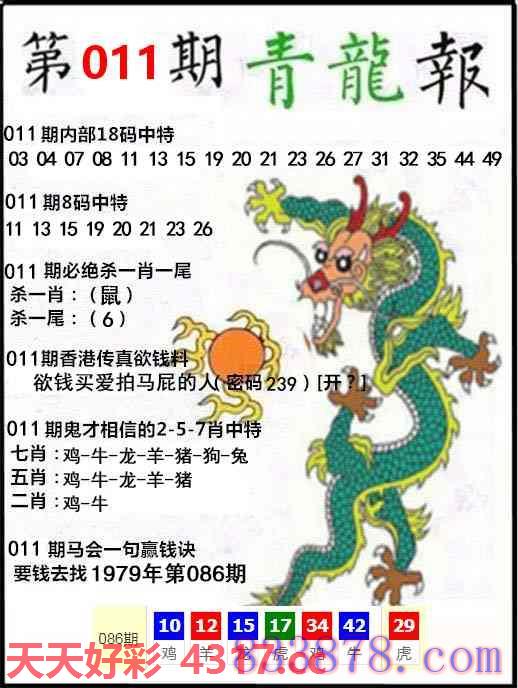 第011期 青龍報
011期内部18码中特
03 04 07 08 11 13 15 19 20 21 23 26 27 31 32 35 44 49
011期8码中特
11 13 15 19 20 21 23 26
011期必绝杀一肖一尾
杀一肖：（鼠）
杀一尾：（6）
011期香港传真欲钱料
欲钱买爱拍马屁的人（密码239）[开？]
011期鬼才相信的2-5-7肖中特
七肖：鸡-牛-龙-羊-猪-狗-兔
五肖：鸡-牛-龙-羊-猪
二肖：鸡-牛
011期马会一句赢钱诀
要钱去找1979年第086期
086期 10 12 15 17 34 42 29
鸡 羊 龙 虎 鸡 牛 虎
天天好彩 4317.cc